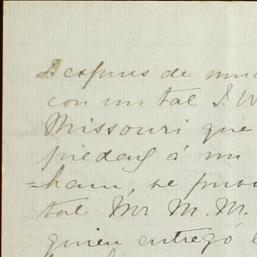 Despues de muc
con un tal J. W
Missouri que
piedad á un
=ham, se puso
tal Mr M. M.
quien entregó